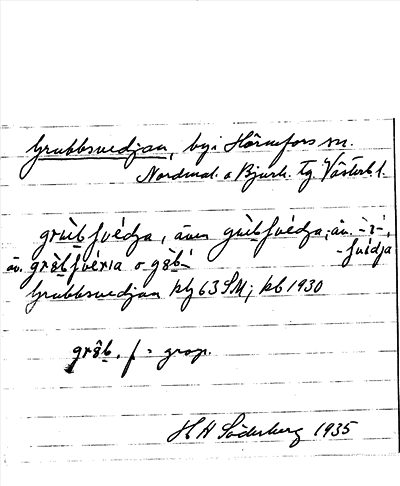 Grubbsvedjan, by i Hörnefors sn.
Nordmal. o Bjurh. tg. Västerb l.
grùbsvédja, även grùbsvédja, äv. -ì-́,
-svídja
äv. grø̀bsvéxia o gø̀b-́
Grubbsvedjan kbg 63 SM; kb 1930
grø̂b, f = grop.
H H Söderberg 1935